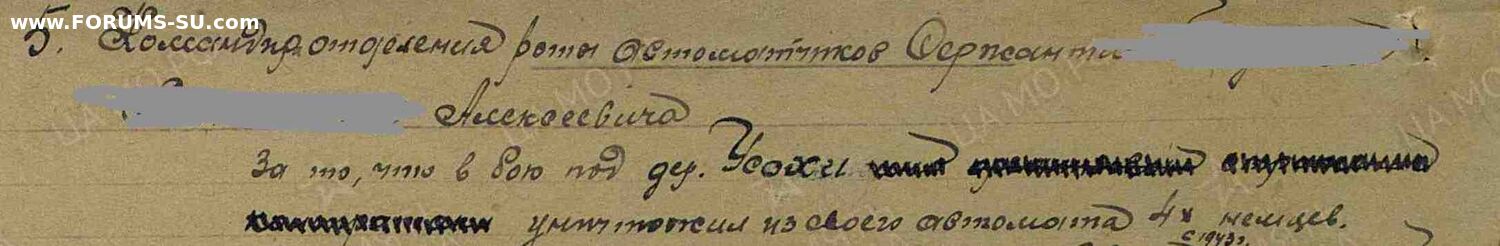 www.FORUMS-SU.com
5. Командира отделения роты автоматчиков Сержанта
Алексеевича
За то, что в бою под дер. Усохи
уничтожил из своего автомата 4х немцев.
с 1943г.